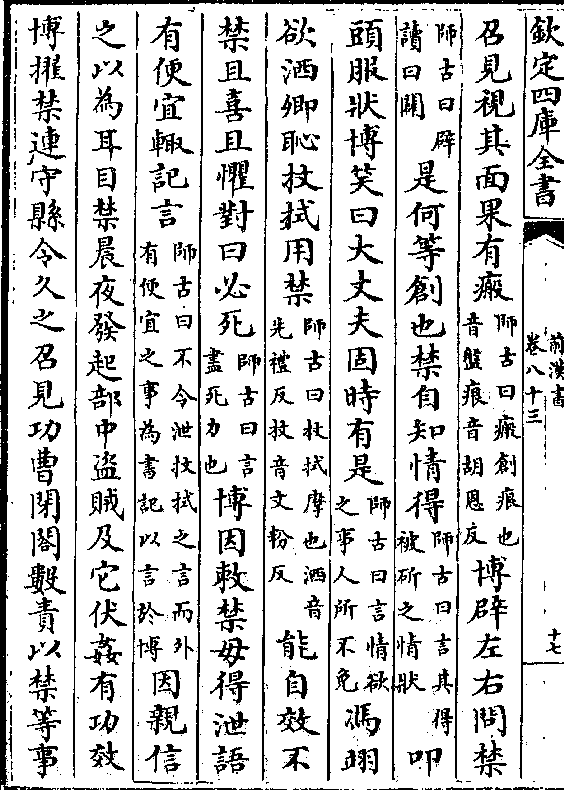 欽定四庫全書
前漢書
卷八十三
十七
召見視其面果有瘢師古曰瘢創痕也音盤痕音胡恩反博辟左右問禁
師古曰辟讀曰闢是何等創也禁自知情得師古曰言其得被斫之情狀叩
頭服狀博笑曰大丈夫固時有是師古曰言情欲之事人所不免馮翊
欲洒卿恥抆拭用禁師古曰抆拭摩也洒音先禮反抆音文粉反能自效不
禁且喜且懼對曰必死師古曰言盡死力也博因敕禁毋得泄語
有便宜輒記言師古曰不令泄抆拭之言而外有便宜之事為書記以言於博因親信
之以為耳目禁晨夜發起部中盜賊及它伏姦有功效
博擢禁連守縣令久之召見功曹閉閤數責以禁等事